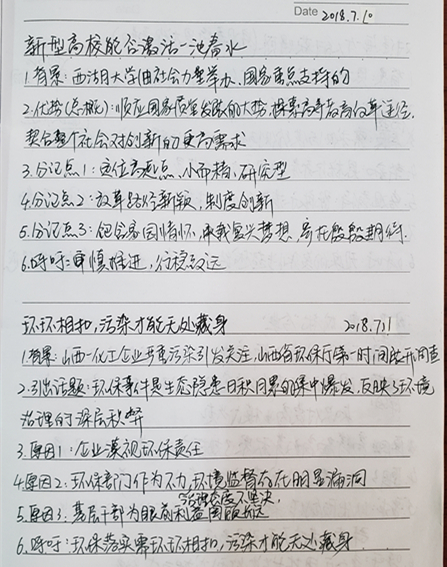 Date 2018.7.10
新型高校能否激活一池春水
1.背景：西湖大学由社会力量举办、国家重点支持的
2.优势(总概)：顺应国家转型发展的大势，探索高等教育改革途径，
契合整个社会对创新的更高需求
3.分论点1：定位高起点、小而精、研究型
4.分论点2：改革路径新颖，制度创新
5.分论点3：饱含家国情怀、承载复兴梦想、寄托殷殷期待.
6.呼吁：审慎推进，行稳致远
环环相扣，污染才能无处藏身 2018.7.11
1.背景：山西一化工企业严重污染引发关注，山西省环保厅第一时间展开调查
2.引出话题：环保事件是生态隐患日积月累的集中爆发，反映了环境
治理的深层积弊
3.原因1：企业漠视环保责任
4.原因2：环保部门作为不力，环境监督存在明显漏洞
治理态度不坚决
5.原因3：基层干部为眼前利益
6.呼吁：环保落实需环环相扣，污染才能无处藏身